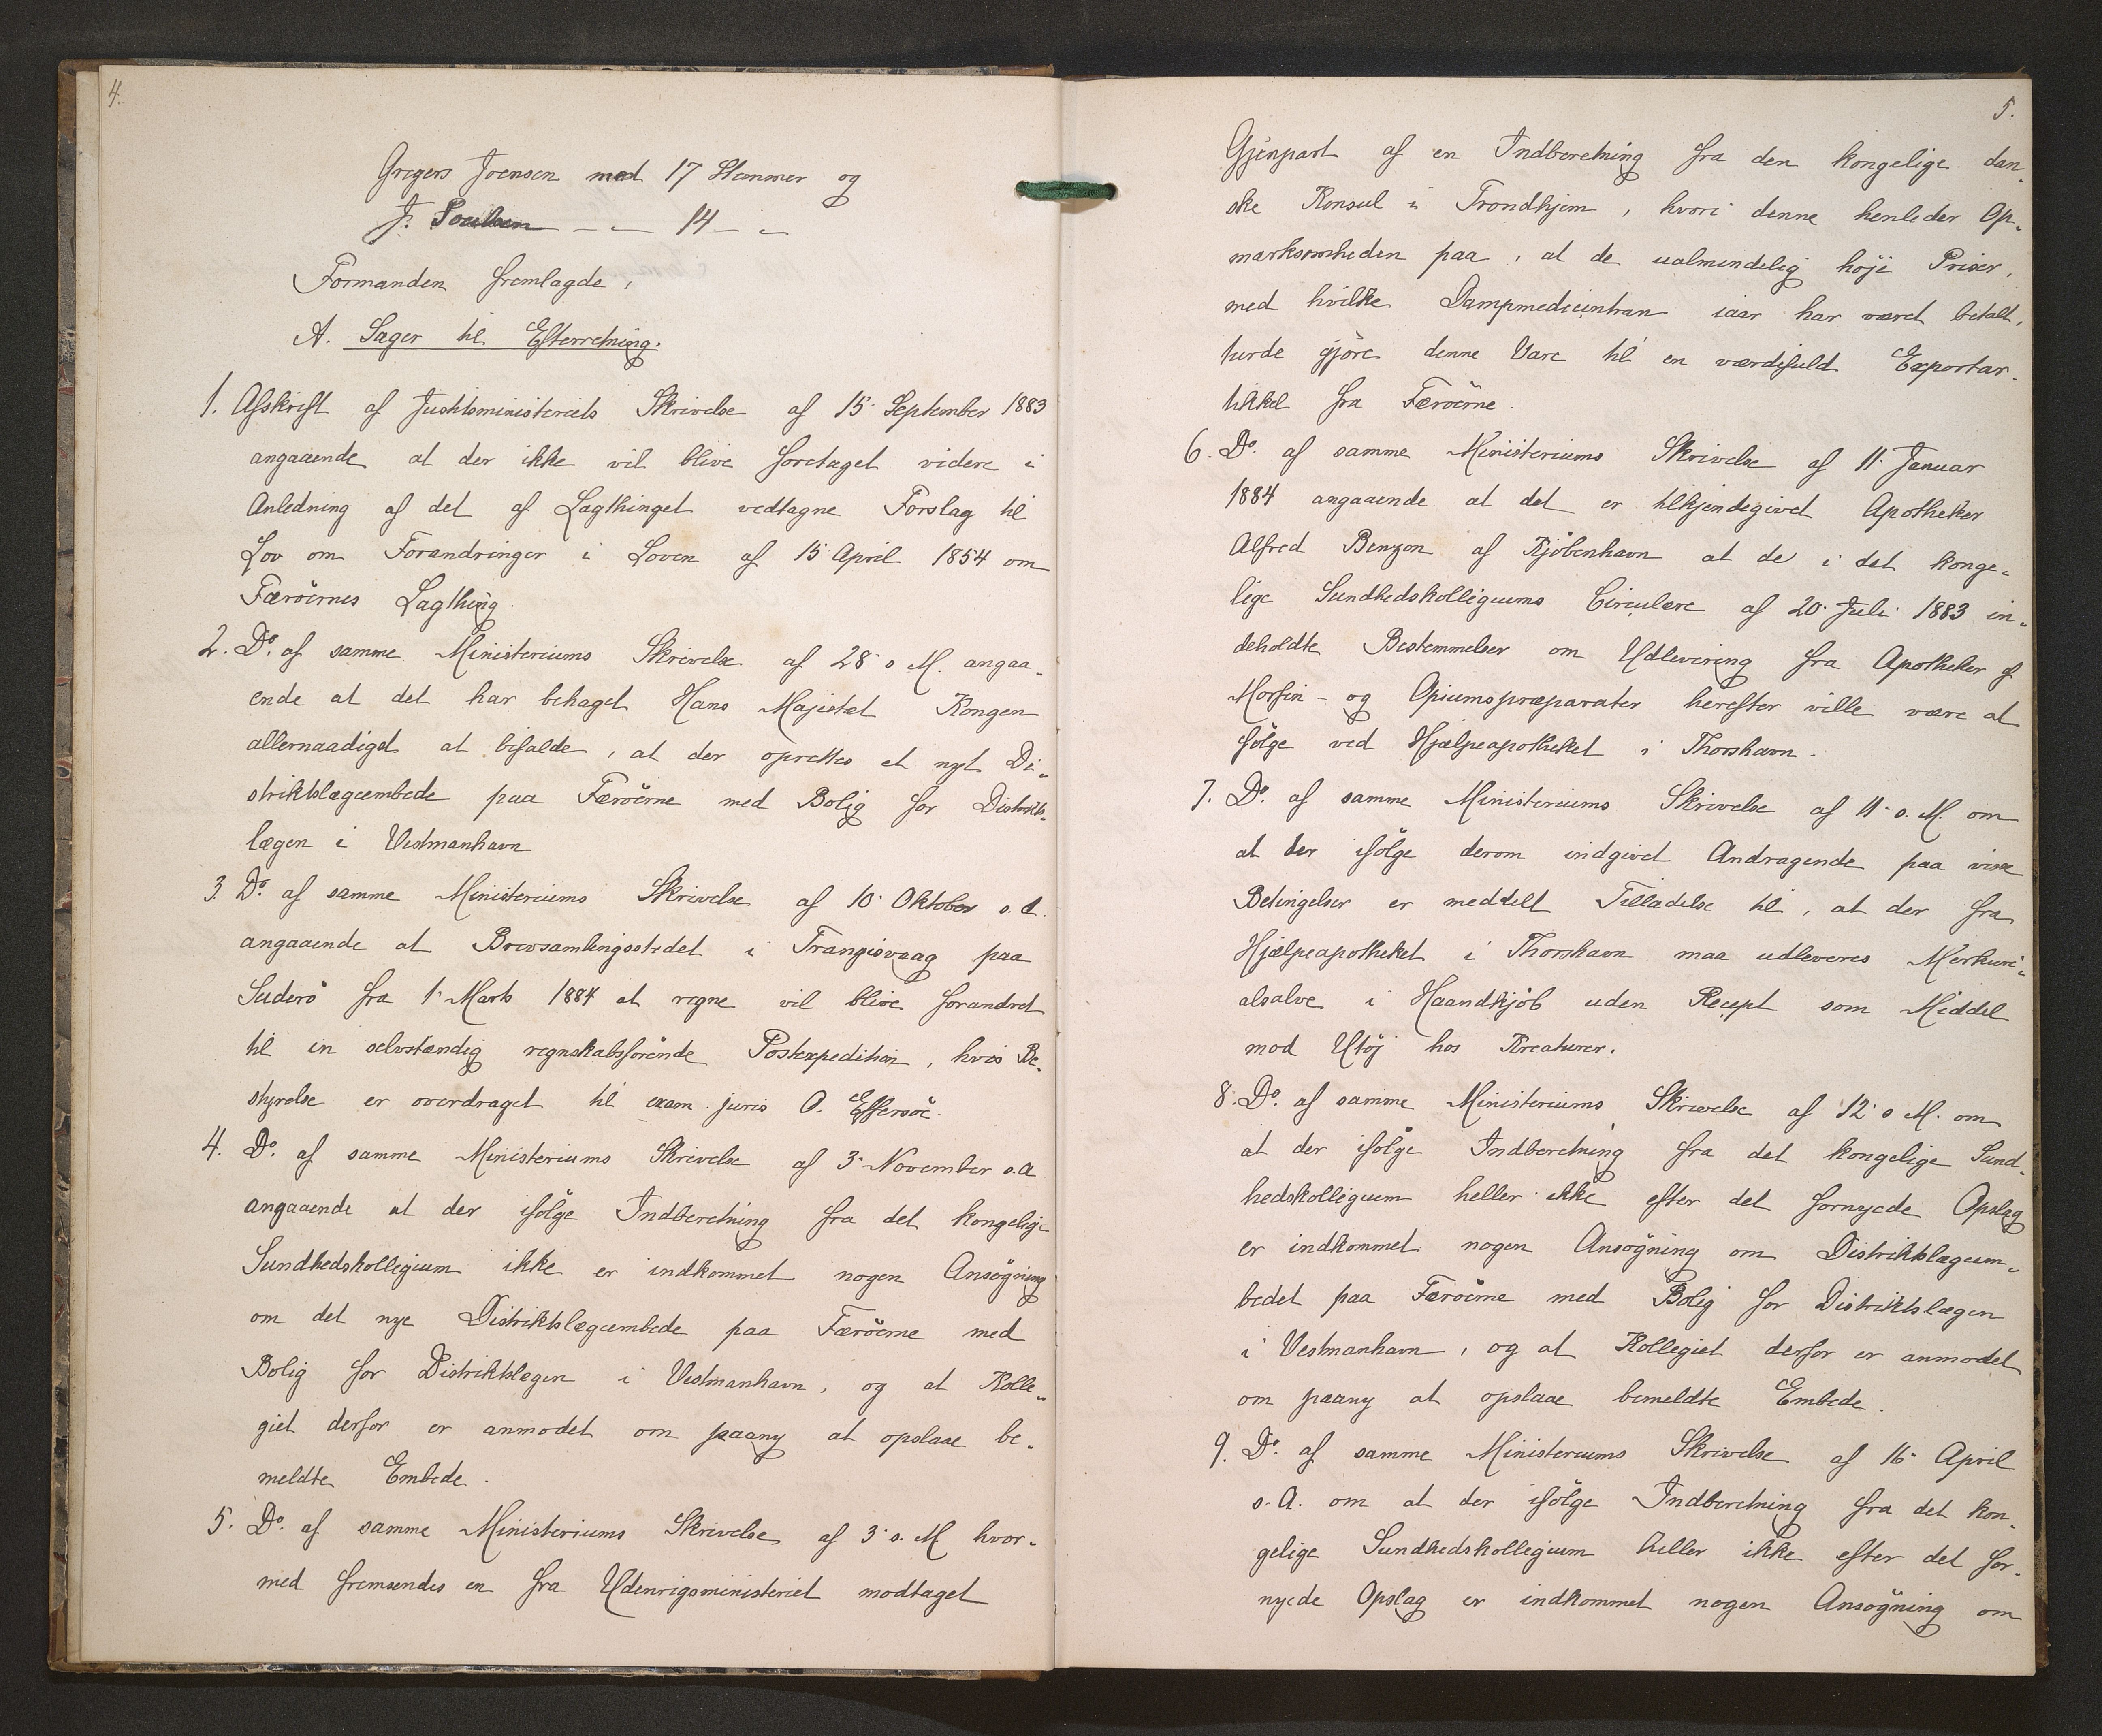 4.
Gregers Joensen med 17 Stemmer og
J. Poulsen — — 14 — "
Formanden fremlagde,
A. Sager til Efterretning.
1. Afskrift af Justitsministeriets Skrivelse af 15. September 1883
angaaende at der ikke vil blive foretaget videre i
Anledning af det af Lagthinget vedtagne Forslag til
Lov om Forandringer i Loven af 15 April 1854 om
Færöernes Lagthing.
2. Do. af samme Ministeriums Skrivelse af 28. s. M. angaa-
ende at det har behaget Hans Majestæt Kongen
allernaadigst at bifalde, at der oprettes et nyt Di-
striktslægeembede paa Færöerne med Bolig for Distrikts-
lægen i Vestmanhavn
3. Do. af samme Ministeriums Skrivelse af 10. Oktober s. A.
angaaende at Brevsamlingsstedet i Trangisvaag paa
Suderö fra 1. Marts 1884 at regne vil blive forandret
til en selvstændig regnskabsförende Postexpedition, hvis Be-
styrelse er overdraget til exam. juris O. Effersöe.
4. Do. af samme Ministeriums Skrivelse af 3. November s. A
angaaende at der ifölge Indberetning fra det kongelige
Sundhedskollegium ikke er indkommet nogen Ansögning
om det nye Distriktslægeembede paa Færöerne med
Bolig for Distriktslægen i Vestmanhavn, og at Kolle-
giet derfor er anmodet om paany at opslaae be-
meldte Embede.
5. Do. af samme Ministeriums Skrivelse af 3. s. M hvor-
med fremsendes en fra Udenrigsministeriet modtaget
5.
Gjenpart af en Indberetning fra den kongelige dan-
ske Konsul i Trondhjem, hvori denne henleder Op-
marksomheden paa, at de ualmindelig höje Priser,
med hvilke Dampmedicintran iaar har været betalt,
turde gjöre denne Vare til en værdifuld Exportar-
tikkel fra Færöerne.
6. Do. af samme Ministeriums Skrivelse af 11. Januar
1884 angaaende at det er tilkjendegivet Apotheker
Alfred Benzon af Kjöbenhavn at de i det konge-
lige Sundhedskollegiums Circulære af 20. Juli 1883 in-
deholdte Bestemmelser om Udlevering fra Apotheker af
Morfin- og Opiumspræparater herefter ville være at
fölge ved Hjælpeapotheket i Thorshavn.
7. Do. af samme Ministeriums Skrivelse af 11. s. M. om
at der ifölge derom indgivet Andragende paa visse
Betingelser er meddelt Tilladelse til, at der fra
Hjælpeapotheket i Thorshavn maa udleveres Merkuri-
alsalve i Haandkjöb uden Recept som Middel
mod Utöj hos Kreaturer.
8. Do. af samme Ministeriums Skrivelse af 12. s M. om
at der ifölge Indberetning fra det kongelige Sund-
hedskollegium heller ikke efter det fornyede Opslag
er indkommet nogen Ansögning om Distriktslægeem-
bedet paa Færöerne med Bolig for Distriktslægen
i Vestmanhavn, og at Kollegiet derfor er anmodet
om paany at opslaae bemeldte Embede.
9. Do. af samme Ministeriums Skrivelse af 16. April
s. A. om at der ifölge Indberetning fra det kon-
gelige Sundhedskollegium heller ikke efter det for-
nyede Opslag er indkommet nogen Ansögning om